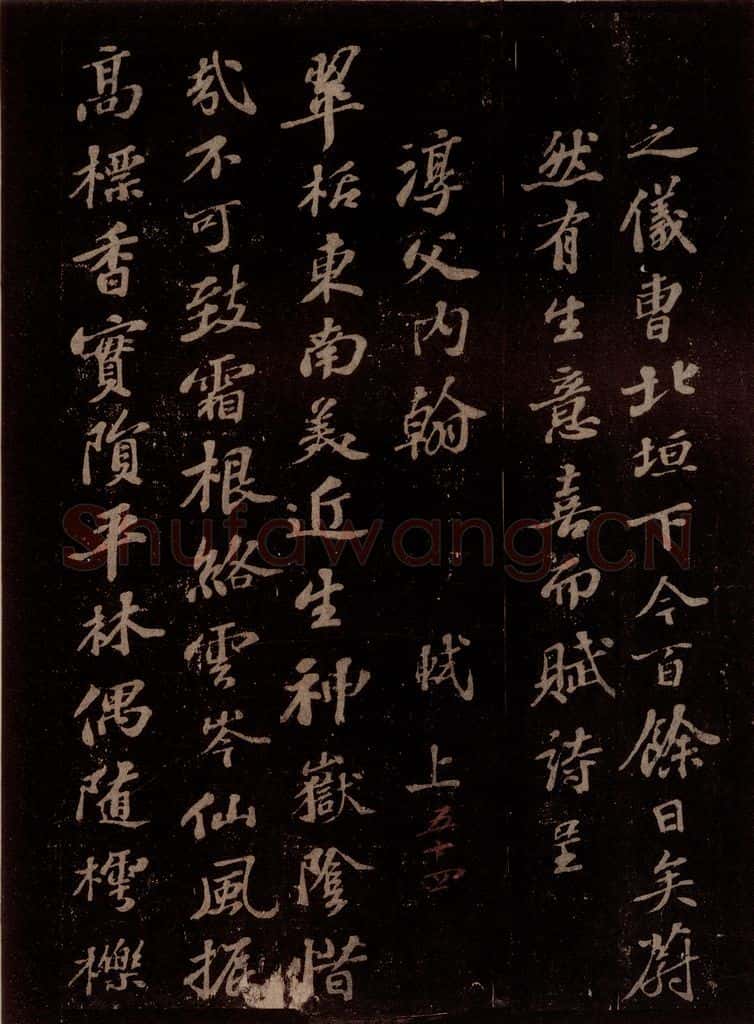 之儀曹北垣下今百餘日矣蔚
然有生意喜而賦詩呈
淳父内翰　軾上
五十四
翠栝東南美近生神嶽陰惜
哉不可致霜根絡雲岑仙風振
高標香實隕平林偶随樗櫟
Shufawang.CN